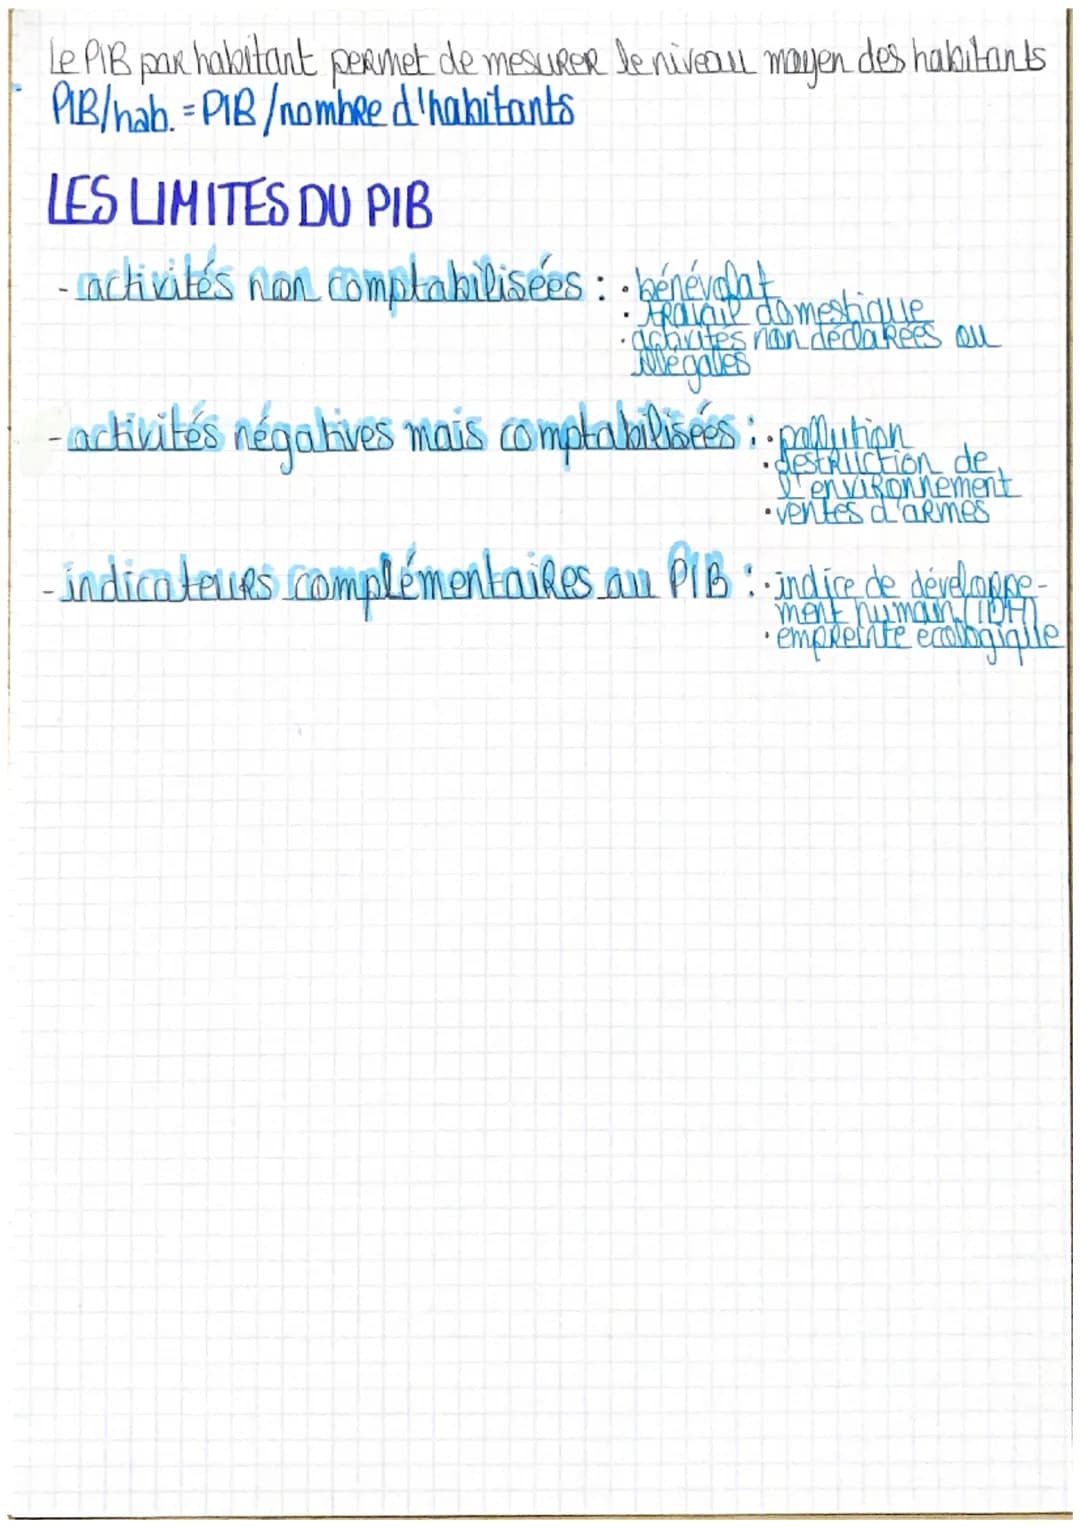 Le PIB par habitant permet de mesurer le niveau moyen des habitants
PIB/hab. = PIB/nombre d'habitants
LES LIMITES DU PIB
- activités non comptabilisées : • bénévolat
• travail domestique
• activités non déclarées ou
illégales
- activités négatives mais comptabilisées : • pollution
• destruction de
l'environnement
• ventes d'armes
- indicateurs complémentaires au PIB : • indice de développe-
ment humain (IDH)
• empreinte écologique